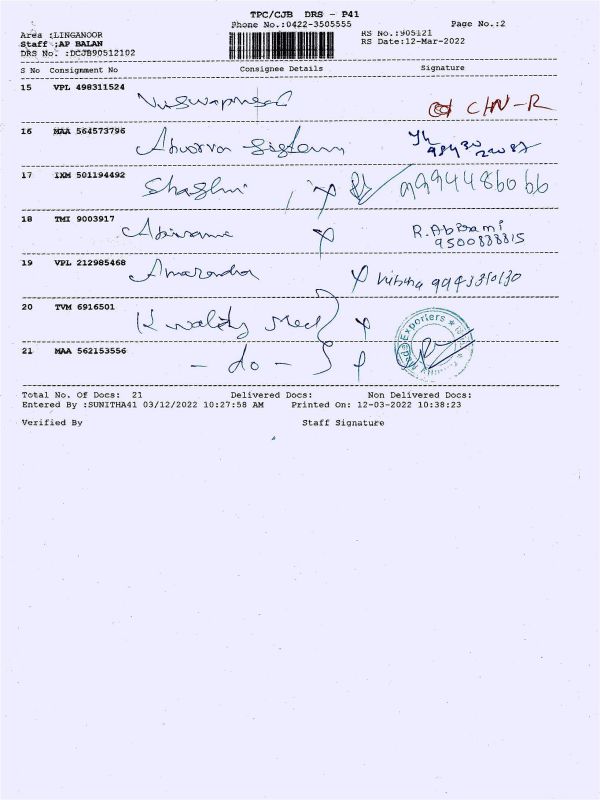 TPC/CJB DRS - P41
Phone No.:0422-3505555 Page No.:2
Area :LINGANOOR RS No.:905121
Staff :AP BALAN RS Date:12-Mar-2022
DRS No. :DCJB90512102
S No Consignment No Consignee Details Signature
15 VPL 498311524
CHN-R
16 MAA 564573796
17 IXM 501194492 9994486066
18 TMI 9003917 R.Abirami
9500888815
19 VPL 212985468 Amarendra
20 TVM 6916501 Kwality Med
Exporters
21 MAA 562153556 - do -
Total No. Of Docs: 21 Delivered Docs: Non Delivered Docs:
Entered By :SUNITHA41 03/12/2022 10:27:58 AM Printed On: 12-03-2022 10:38:23
Verified By Staff Signature